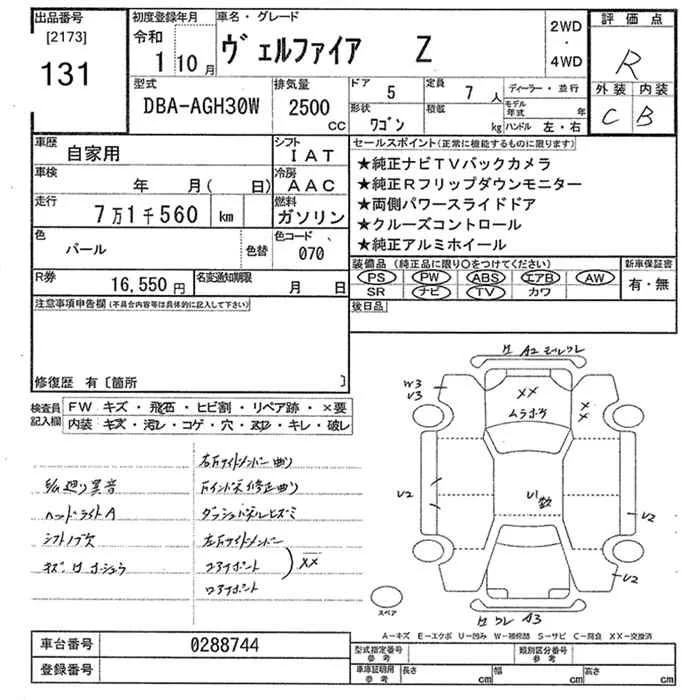 出品番号
[2173]
131
初度登録年月
令和
1 10 月
車名・グレード
ヴェルファイア Z
2WD
・
4WD
評価点
R
外装 内装
C B
型式
DBA-AGH30W
排気量
2500
CC
ドア 5
定員 7 人
形状 ワゴン
積載 kg
ディーラー・並行
モデル年式 年
ハンドル 左・右
車歴 自家用
シフト IAT
車検 年 月( 日)
冷房 AAC
走行 7万1千560 km
燃料 ガソリン
色 パール 色替
色コード 070
R券 16,550 円
名変通知期限 月 日
セールスポイント(正常に機能するものに限ります)
★純正ナビTVバックカメラ
★純正Rフリップダウンモニター
★両側パワースライドドア
★クルーズコントロール
★純正アルミホイール
装備品 (純正品に限り○をつけてください)
PS PW ABS エアB AW
SR ナビ TV カワ
新車保証書
有・無
後日品
注意事項申告欄(不具合内容等は具体的に記入して下さい)
修復歴 有〔箇所 〕
検査員記入欄
FW キズ・飛石・ヒビ割・リペア跡・×要
内装 キズ・汚レ・コゲ・穴・スレ・キレ・破レ
右サイドメンバー曲り
異音
ヘッドライトA
シフトノブ欠
キズ
修正曲り
ダッシュパネルヒズミ
左サイドメンバー
コアサポート
XX
A2
W3
V3
XX
ムラボケ
××
U2
U1数
U2
U2
ワレ A3
スペア
A-キズ E-エクボ U-凹み W-補修跡 S-サビ C-腐食 XX-交換済
車台番号 0288744
登録番号
型式指定番号 参考
類別区分番号 参考
車庫証明用 参考
長さ cm
幅 cm
高さ cm